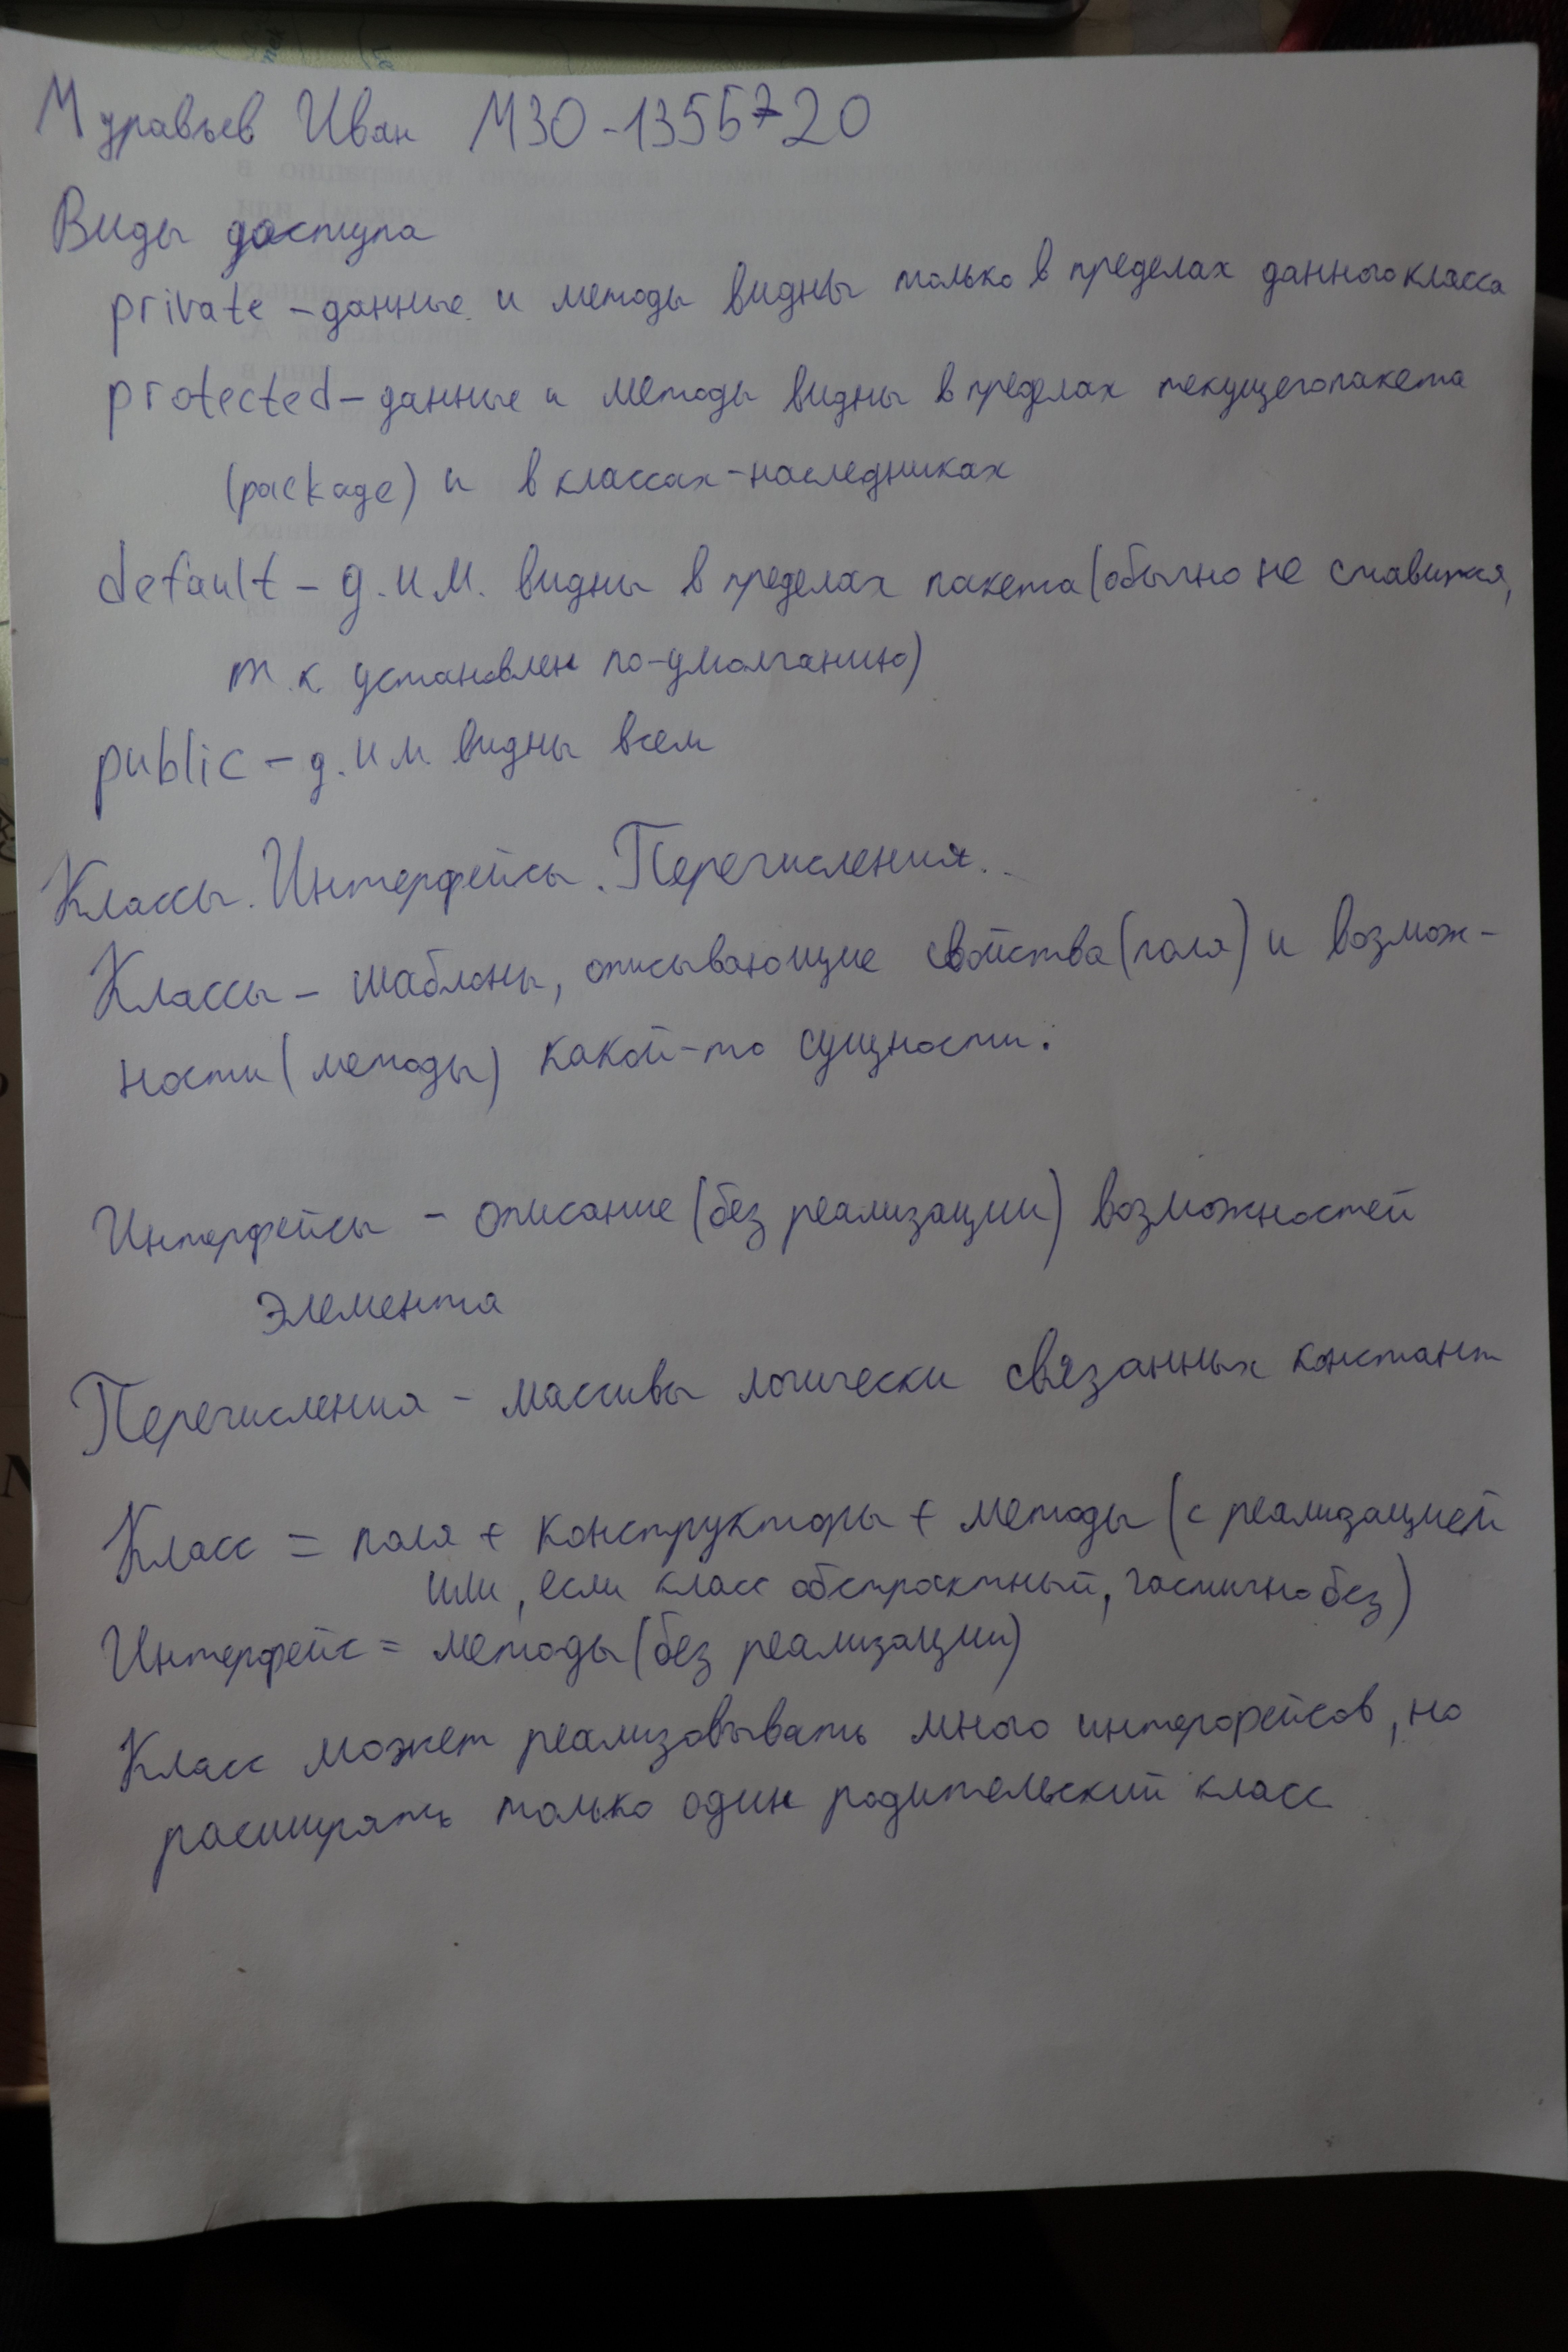 Муравьев Иван М30-135Б-20
Виды доступа
private – данные и методы видны только в пределах данного класса
protected – данные и методы видны в пределах текущего пакета
(package) и в классах-наследниках
default – д. и м. видны в пределах пакета (обычно не ставится,
т.к. установлен по-умолчанию)
public – д. и м. видны всем
Классы. Интерфейсы. Перечисления.
Классы – шаблоны, описывающие свойства (поля) и возмож-
ности (методы) какой-то сущности.
Интерфейсы – описание (без реализации) возможностей
элемента
Перечисления – массивы логически связанных констант
Класс = поля + конструкторы + методы (с реализацией
или, если класс абстрактный, частично без)
Интерфейс = методы (без реализации)
Класс может реализовывать много интерфейсов, но
расширять только один родительский класс